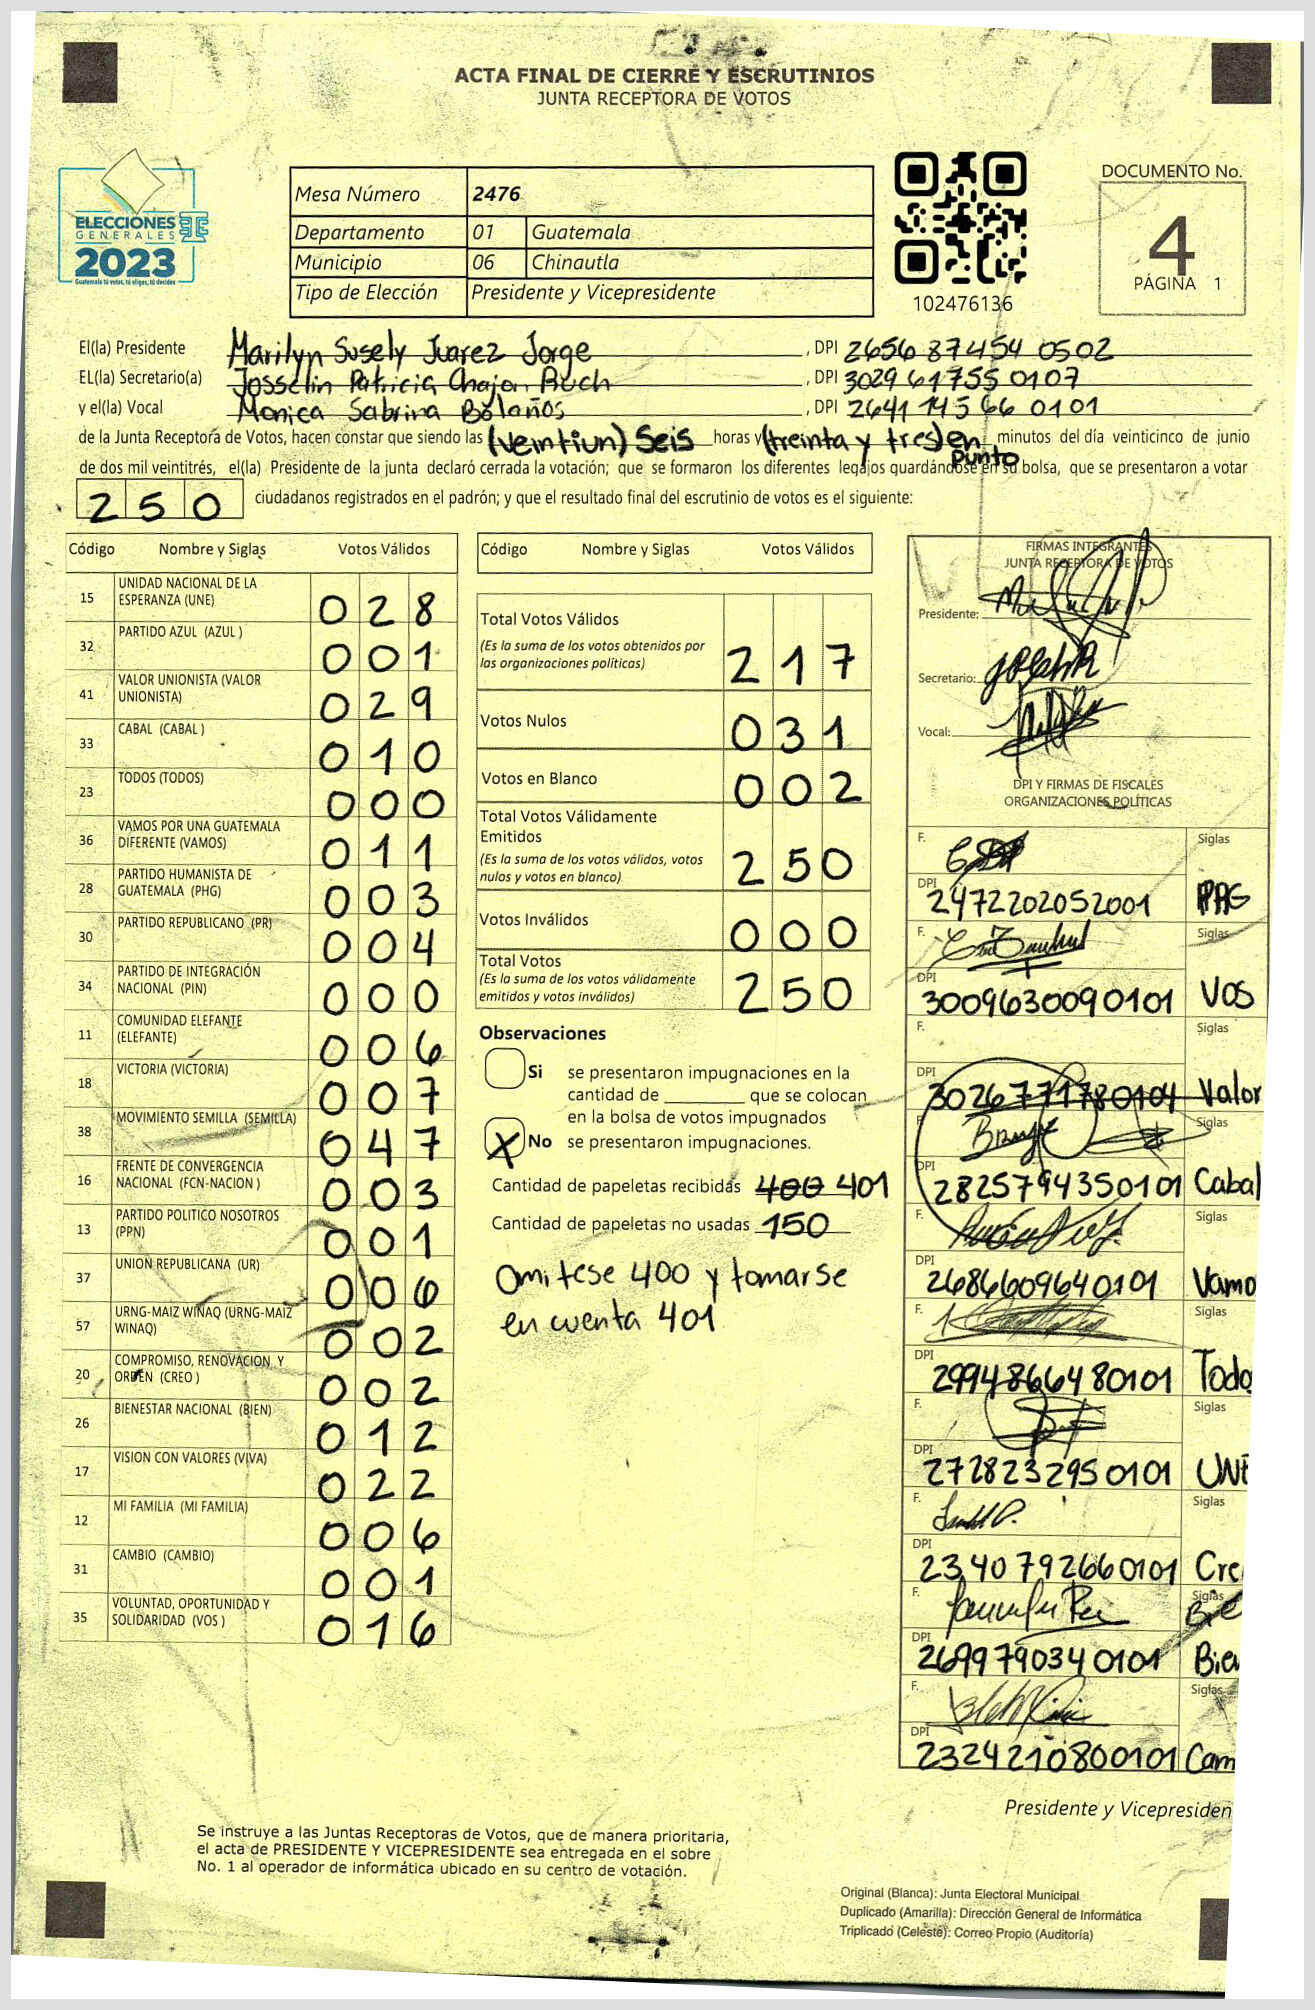 ACTA FINAL DE CIERRE Y ESCRUTINIOS
JUNTA RECEPTORA DE VOTOS
ELECCIONES
GENERALES
2023
Guatemala tú votas, tú eliges, tú decides
Mesa Número 2476
Departamento 01 Guatemala
Municipio 06 Chinautla
Tipo de Elección Presidente y Vicepresidente
102476136
DOCUMENTO No.
4
PÁGINA 1
El(la) Presidente Marilyn Susely Juarez Jorge , DPI 2656 87454 0502
EL(la) Secretario(a) Josselin Patricia Chajon Ruch , DPI 3029 61755 0107
y el(la) Vocal Monica Sabrina Bolaños , DPI 2641 14566 0101
de la Junta Receptora de Votos, hacen constar que siendo las (veintiun) Seis horas y (treinta y tres) en punto minutos del día veinticinco de junio
de dos mil veintitrés, el(la) Presidente de la junta declaró cerrada la votación; que se formaron los diferentes legajos guardándose en su bolsa, que se presentaron a votar
250 ciudadanos registrados en el padrón; y que el resultado final del escrutinio de votos es el siguiente:
Código Nombre y Siglas Votos Válidos
15 UNIDAD NACIONAL DE LA ESPERANZA (UNE) 028
32 PARTIDO AZUL (AZUL ) 001
41 VALOR UNIONISTA (VALOR UNIONISTA) 029
33 CABAL (CABAL ) 010
23 TODOS (TODOS) 000
36 VAMOS POR UNA GUATEMALA DIFERENTE (VAMOS) 011
28 PARTIDO HUMANISTA DE GUATEMALA (PHG) 003
30 PARTIDO REPUBLICANO (PR) 004
34 PARTIDO DE INTEGRACIÓN NACIONAL (PIN) 000
11 COMUNIDAD ELEFANTE (ELEFANTE) 006
18 VICTORIA (VICTORIA) 007
38 MOVIMIENTO SEMILLA (SEMILLA) 047
16 FRENTE DE CONVERGENCIA NACIONAL (FCN-NACION ) 003
13 PARTIDO POLITICO NOSOTROS (PPN) 001
37 UNION REPUBLICANA (UR) 006
57 URNG-MAIZ WINAQ (URNG-MAIZ WINAQ) 002
20 COMPROMISO, RENOVACION Y ORDEN (CREO ) 002
26 BIENESTAR NACIONAL (BIEN) 012
17 VISION CON VALORES (VIVA) 022
12 MI FAMILIA (MI FAMILIA) 006
31 CAMBIO (CAMBIO) 001
35 VOLUNTAD, OPORTUNIDAD Y SOLIDARIDAD (VOS ) 016
Código Nombre y Siglas Votos Válidos
Total Votos Válidos
(Es la suma de los votos obtenidos por
las organizaciones políticas) 217
Votos Nulos 031
Votos en Blanco 002
Total Votos Válidamente
Emitidos
(Es la suma de los votos válidos, votos
nulos y votos en blanco) 250
Votos Inválidos 000
Total Votos
(Es la suma de los votos válidamente
emitidos y votos inválidos) 250
Observaciones
Si se presentaron impugnaciones en la
cantidad de ________ que se colocan
en la bolsa de votos impugnados
X No se presentaron impugnaciones.
Cantidad de papeletas recibidas 400 401
Cantidad de papeletas no usadas 150
Omitese 400 y tomarse
en cuenta 401
FIRMAS INTEGRANTES
JUNTA RECEPTORA DE VOTOS
Presidente:
Secretario:
Vocal:
DPI Y FIRMAS DE FISCALES
ORGANIZACIONES POLÍTICAS
F. Siglas
DPI 2472202052001 PHG
F. Siglas
DPI 3009630090101 VOS
F. Siglas
DPI 3026771780104 Valor
F. Siglas
DPI 2825794350101 Cabal
F. Siglas
DPI 2686609640101 Vamo
F. Siglas
DPI 2994866480101 Todo
F. Siglas
DPI 2728232950101 UNE
F. Siglas
DPI 2340792660101 Cre
F. Siglas Bie
DPI 2699790340101 Bie
F. Siglas
DPI 2324210800101 Cam
Presidente y Vicepresiden
Se instruye a las Juntas Receptoras de Votos, que de manera prioritaria,
el acta de PRESIDENTE Y VICEPRESIDENTE sea entregada en el sobre
No. 1 al operador de informática ubicado en su centro de votación.
Original (Blanca): Junta Electoral Municipal
Duplicado (Amarilla): Dirección General de Informática
Triplicado (Celeste): Correo Propio (Auditoría)